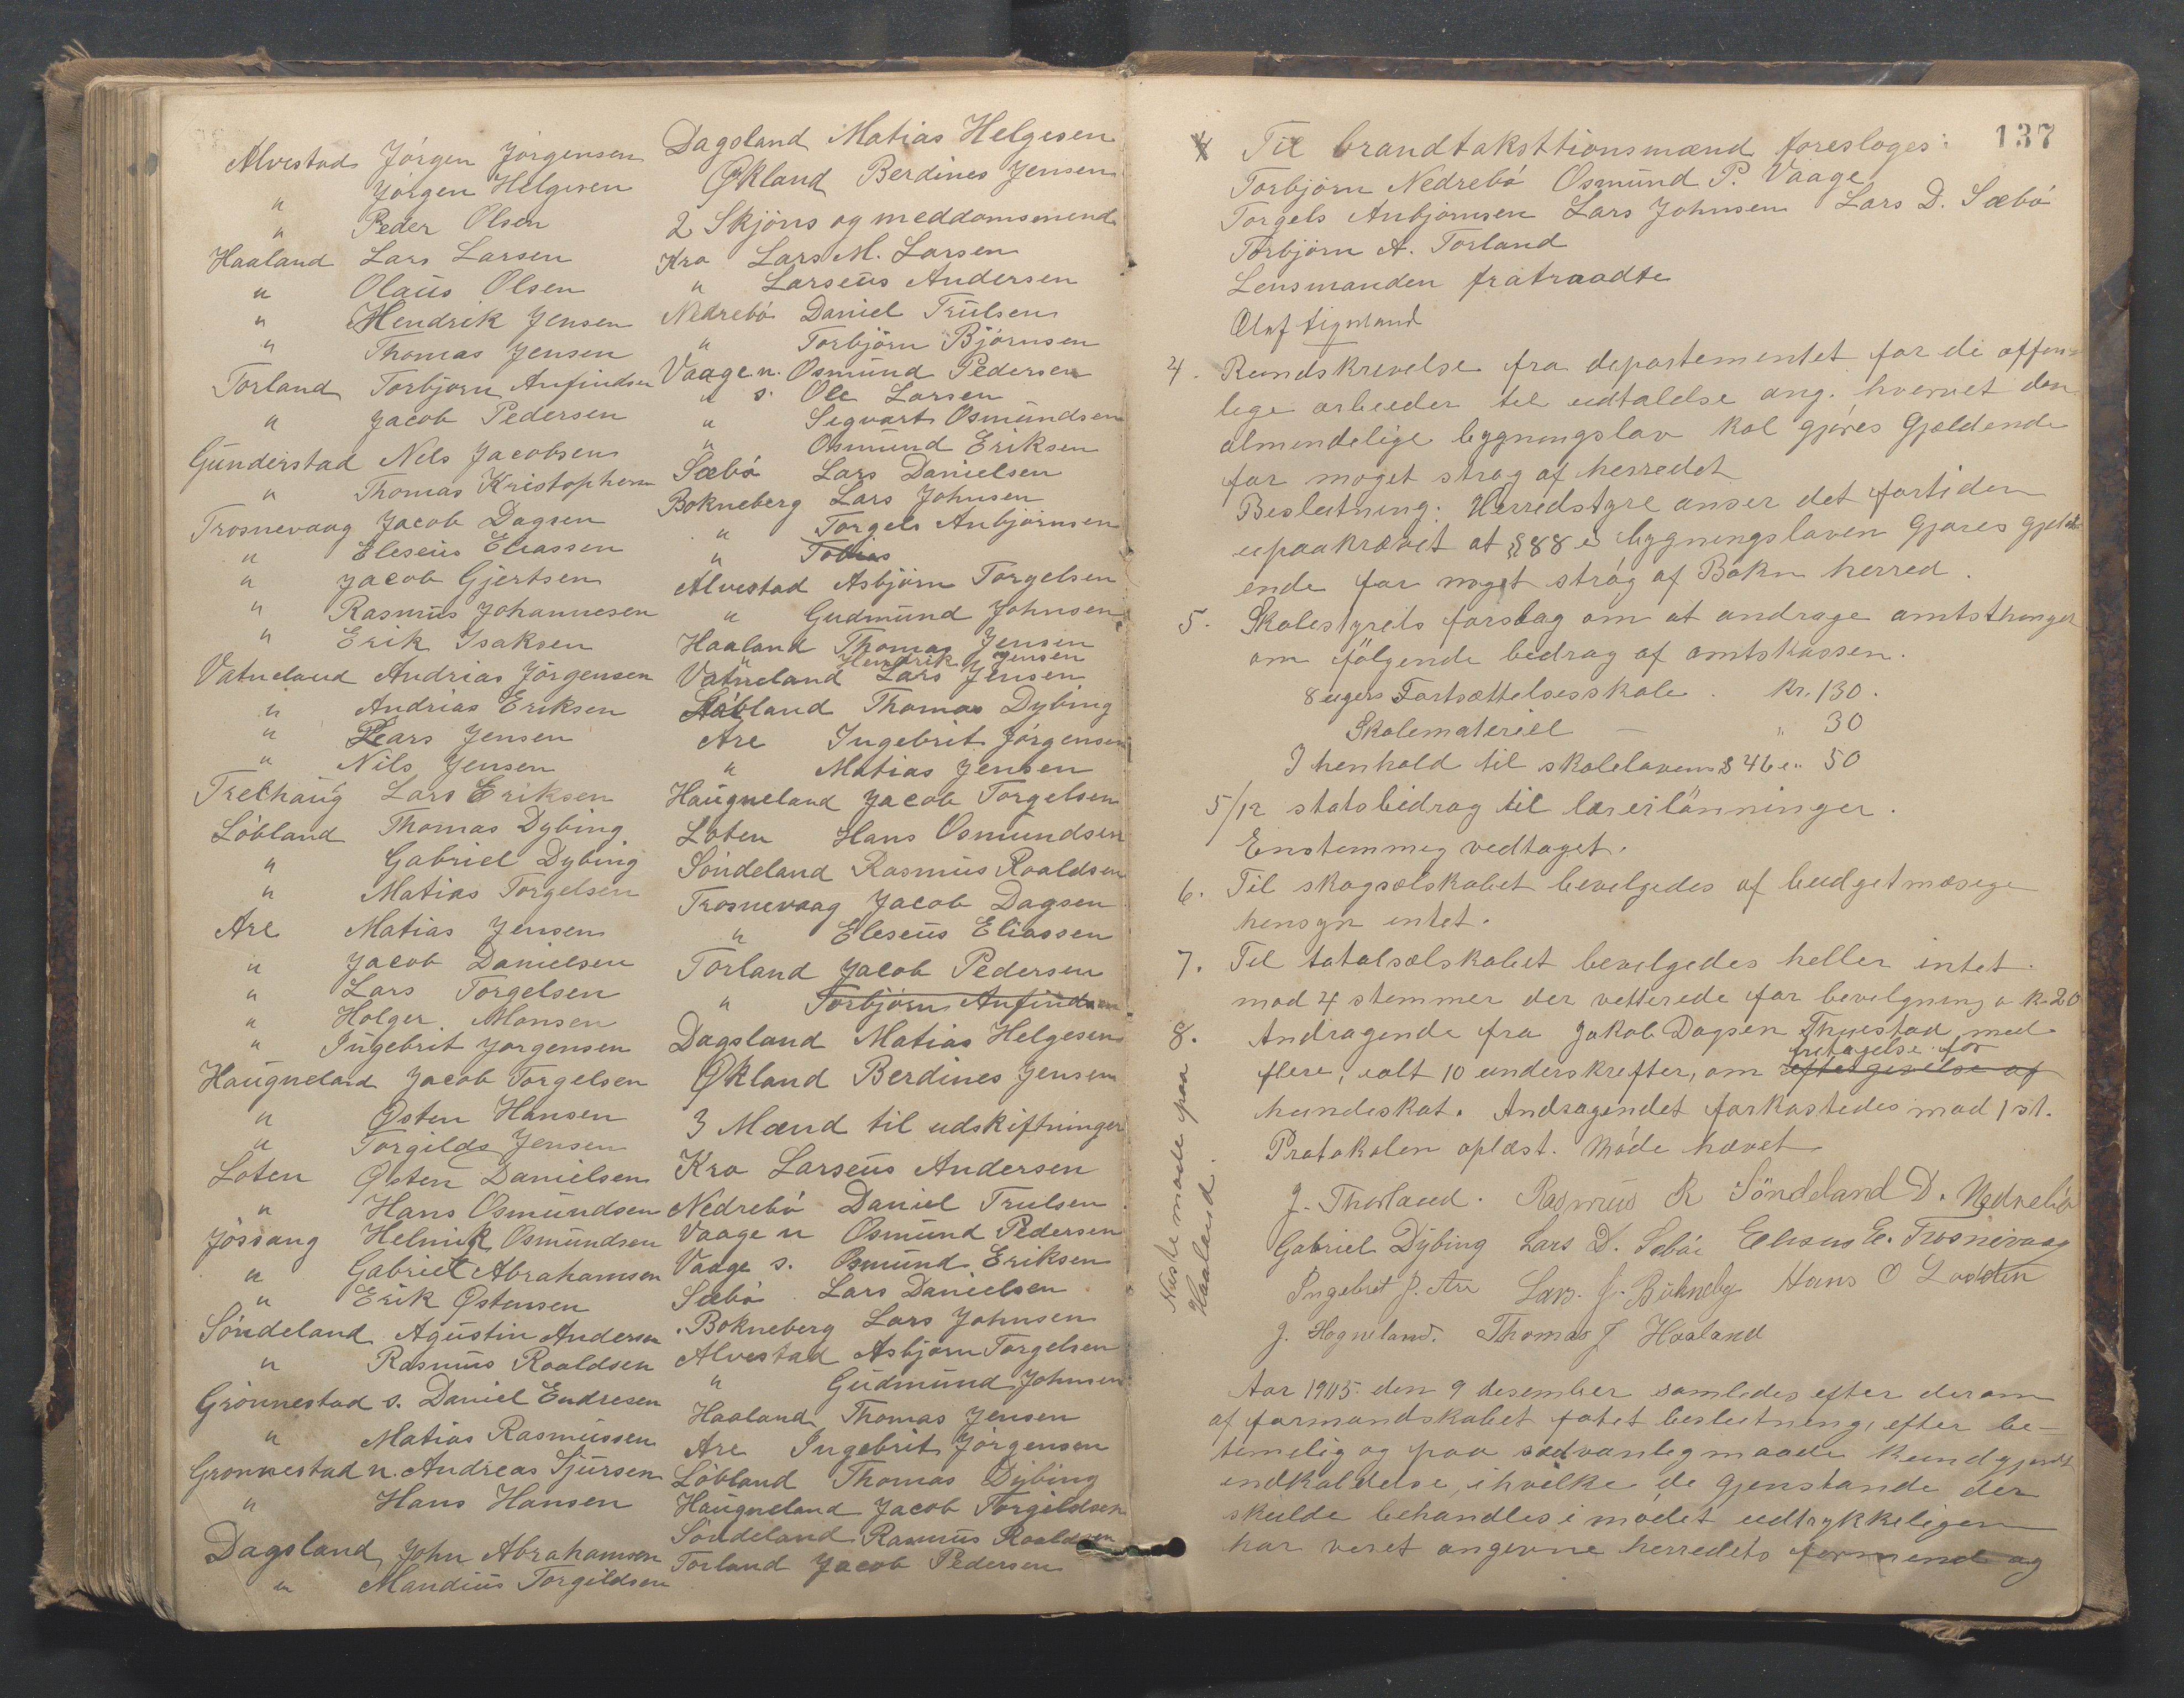 Alvestad Jørgen Jørgensen
" Jørgen Helgesen
" Peder Olsen
Haaland Lars Larsen
" Olaüs Olsen
" Hendrik Jensen
" Thomas Jensen
Torland Torbjørn Anfindsen
" Jacob Pedersen
Günderstad Nils Jacobsen
" Thomas Kristophersen
Trosnevaag Jacob Dagsen
" Eleseüs Eliassen
" Jacob Gjertsen
" Rasmüs Johannesen
" Erik Isaksen
Vatneland Andrias Jørgensen
" Andrias Eriksen
" Lars Jensen
" Nils Jensen
Trelhaüg Lars Eriksen
Løbland Thomas Dybing
" Gabriel Dybing
" Matias Torgelsen
Are Matias Jensen
" Jacob Danielsen
" Lars Torgelsen
" Holger Monsen
" Ingebrit Jørgensen
Haügneland Jacob Torgelsen
" Østen Hansen
" Torgilds Jensen
Loten Østen Danielsen
" Hans Osmündsen
Jøssang Helmik Osmündsen
" Gabriel Abrahamsen
" Erik Østensen
Søndeland Agüstin Andersen
" Rasmüs Roaldsen
Grønnestad s. Daniel Endresen
" Matias Rasmüssen
Grønnestad n. Andreas Sjürsen
" Hans Hansen
Dagsland John Abrahamsen
" Mandiüs Torgildsen
Dagsland Matias Helgesen
Økland Berdines Jensen
2 Skjøns og meddomsmend
Kro Lars M. Larsen
" Larseüs Andersen
Nedrebø Daniel Trülsen
" Torbjørn Bjørnsen
Vaage n. Osmünd Pedersen
" s. Ole Larsen
" Segvart Osmündsen
" Osmünd Eriksen
Sæbø Lars Danielsen
Bokneberg Lars Johnsen
" Torgels Anbjørnsen
" Tobias
Alvestad Asbjørn Torgelsen
" Gudmünd Johnsen
Haaland Thomas Jensen
" Hendrik Jensen
Vatneland Lars Jensen
Løbland Thomas Dybing
Are Ingebrit Jørgensen
" Matias Jensen
Haügneland Jacob Torgelsen
Loten Hans Osmundsen
Søndeland Rasmüs Roaldsen
Trosnevaag Jacob Dagsen
" Eleseüs Eliassen
Torland Jacob Pedersen
" Torbjørn Anfindsen
Dagsland Matias Helgesen
Økland Berdines Jensen
3 Mænd til udskiftninger
Kro Larseüs Andersen
Nedrebø Daniel Trulsen
Vaage n Osmünd Pedersen
Vaage s. Osmünd Eriksen
Sæbø Lars Danielsen
Bokneberg Lars Johnsen
Alvestad Asbjørn Torgelsen
" Güdmünd Johnsen
Haaland Thomas Jensen
Are Ingebrit Jørgensen
Løbland Thomas Dybing
Haügneland Jacob Torgildsen
Søndeland Rasmüs Roaldsen
Torland Jacob Pedersen
137
Til brandtaksttionsmænd foresloges:
Torbjørn Nedrebø Osmünd P. Vaage
Torgels Anbjørnsen Lars Johnsen Lars D. Sæbø
Torbjørn A. Torland
Lensmanden fratraadte
Olaf
4. Rundskrivelse fra departementet for de offen-
lige arbeider til udtalelse ang. hvorvet den
almindelige bygningslov skal gjøres gjældende
for noget strøg af herredet
Beslutning: Herredstyre anser det fortiden
upaakrævet at § 88 i bygningsloven gjøres gjeld
ende for noget strøg af Bokn herred.
5. Skolestyrets forslag om at andrage amtsthinget
om følgende bedrag af amtskassen.
8 ugers Fortsættelsesskole . Kr. 130.
Skolemateriell — " 30
I henhold til skolelovens § 46 e " 50
5/12 statsbidrag til lærerlønninger.
Enstemmig vedtaget.
6. Til skogsælskabet bevilgedes af budgetmæsige
hensyn intet.
7. Til totalsælskabet bevilgedes heller intet.
mod 4 stemmer der votterede for bevilgning a kr 20
8. Andragende fra Jakob Dagsen Thuestad med
fritagelse for
flere, ialt 10 underskrefter, om eftergivelse af
hundeskat. Andragendet forkastedes mod 1 st.
Protokolen oplæst. Møde hævet
Neste møde paa
Haaland.
J. Thorland. Rasmus R Søndeland D. Nedrebø
Gabriel Dybing Lars D. Sebø Eliseus E. Trosnevaag
Ingebret J. Are Lars. J. Bokneberg Hans O Lodden
J. Hogneland. Thomas J Haaland
Aar 1905 den 9 desember samledes efter derom
af formandskabet fatet beslutning, efter be-
timelig og paa sædvanlig maade kundgjordt
indkaldelse, i hvilke de gjenstande der
skulde behandles i mødet udtrykkeligen
har veret angevne herredets formend og